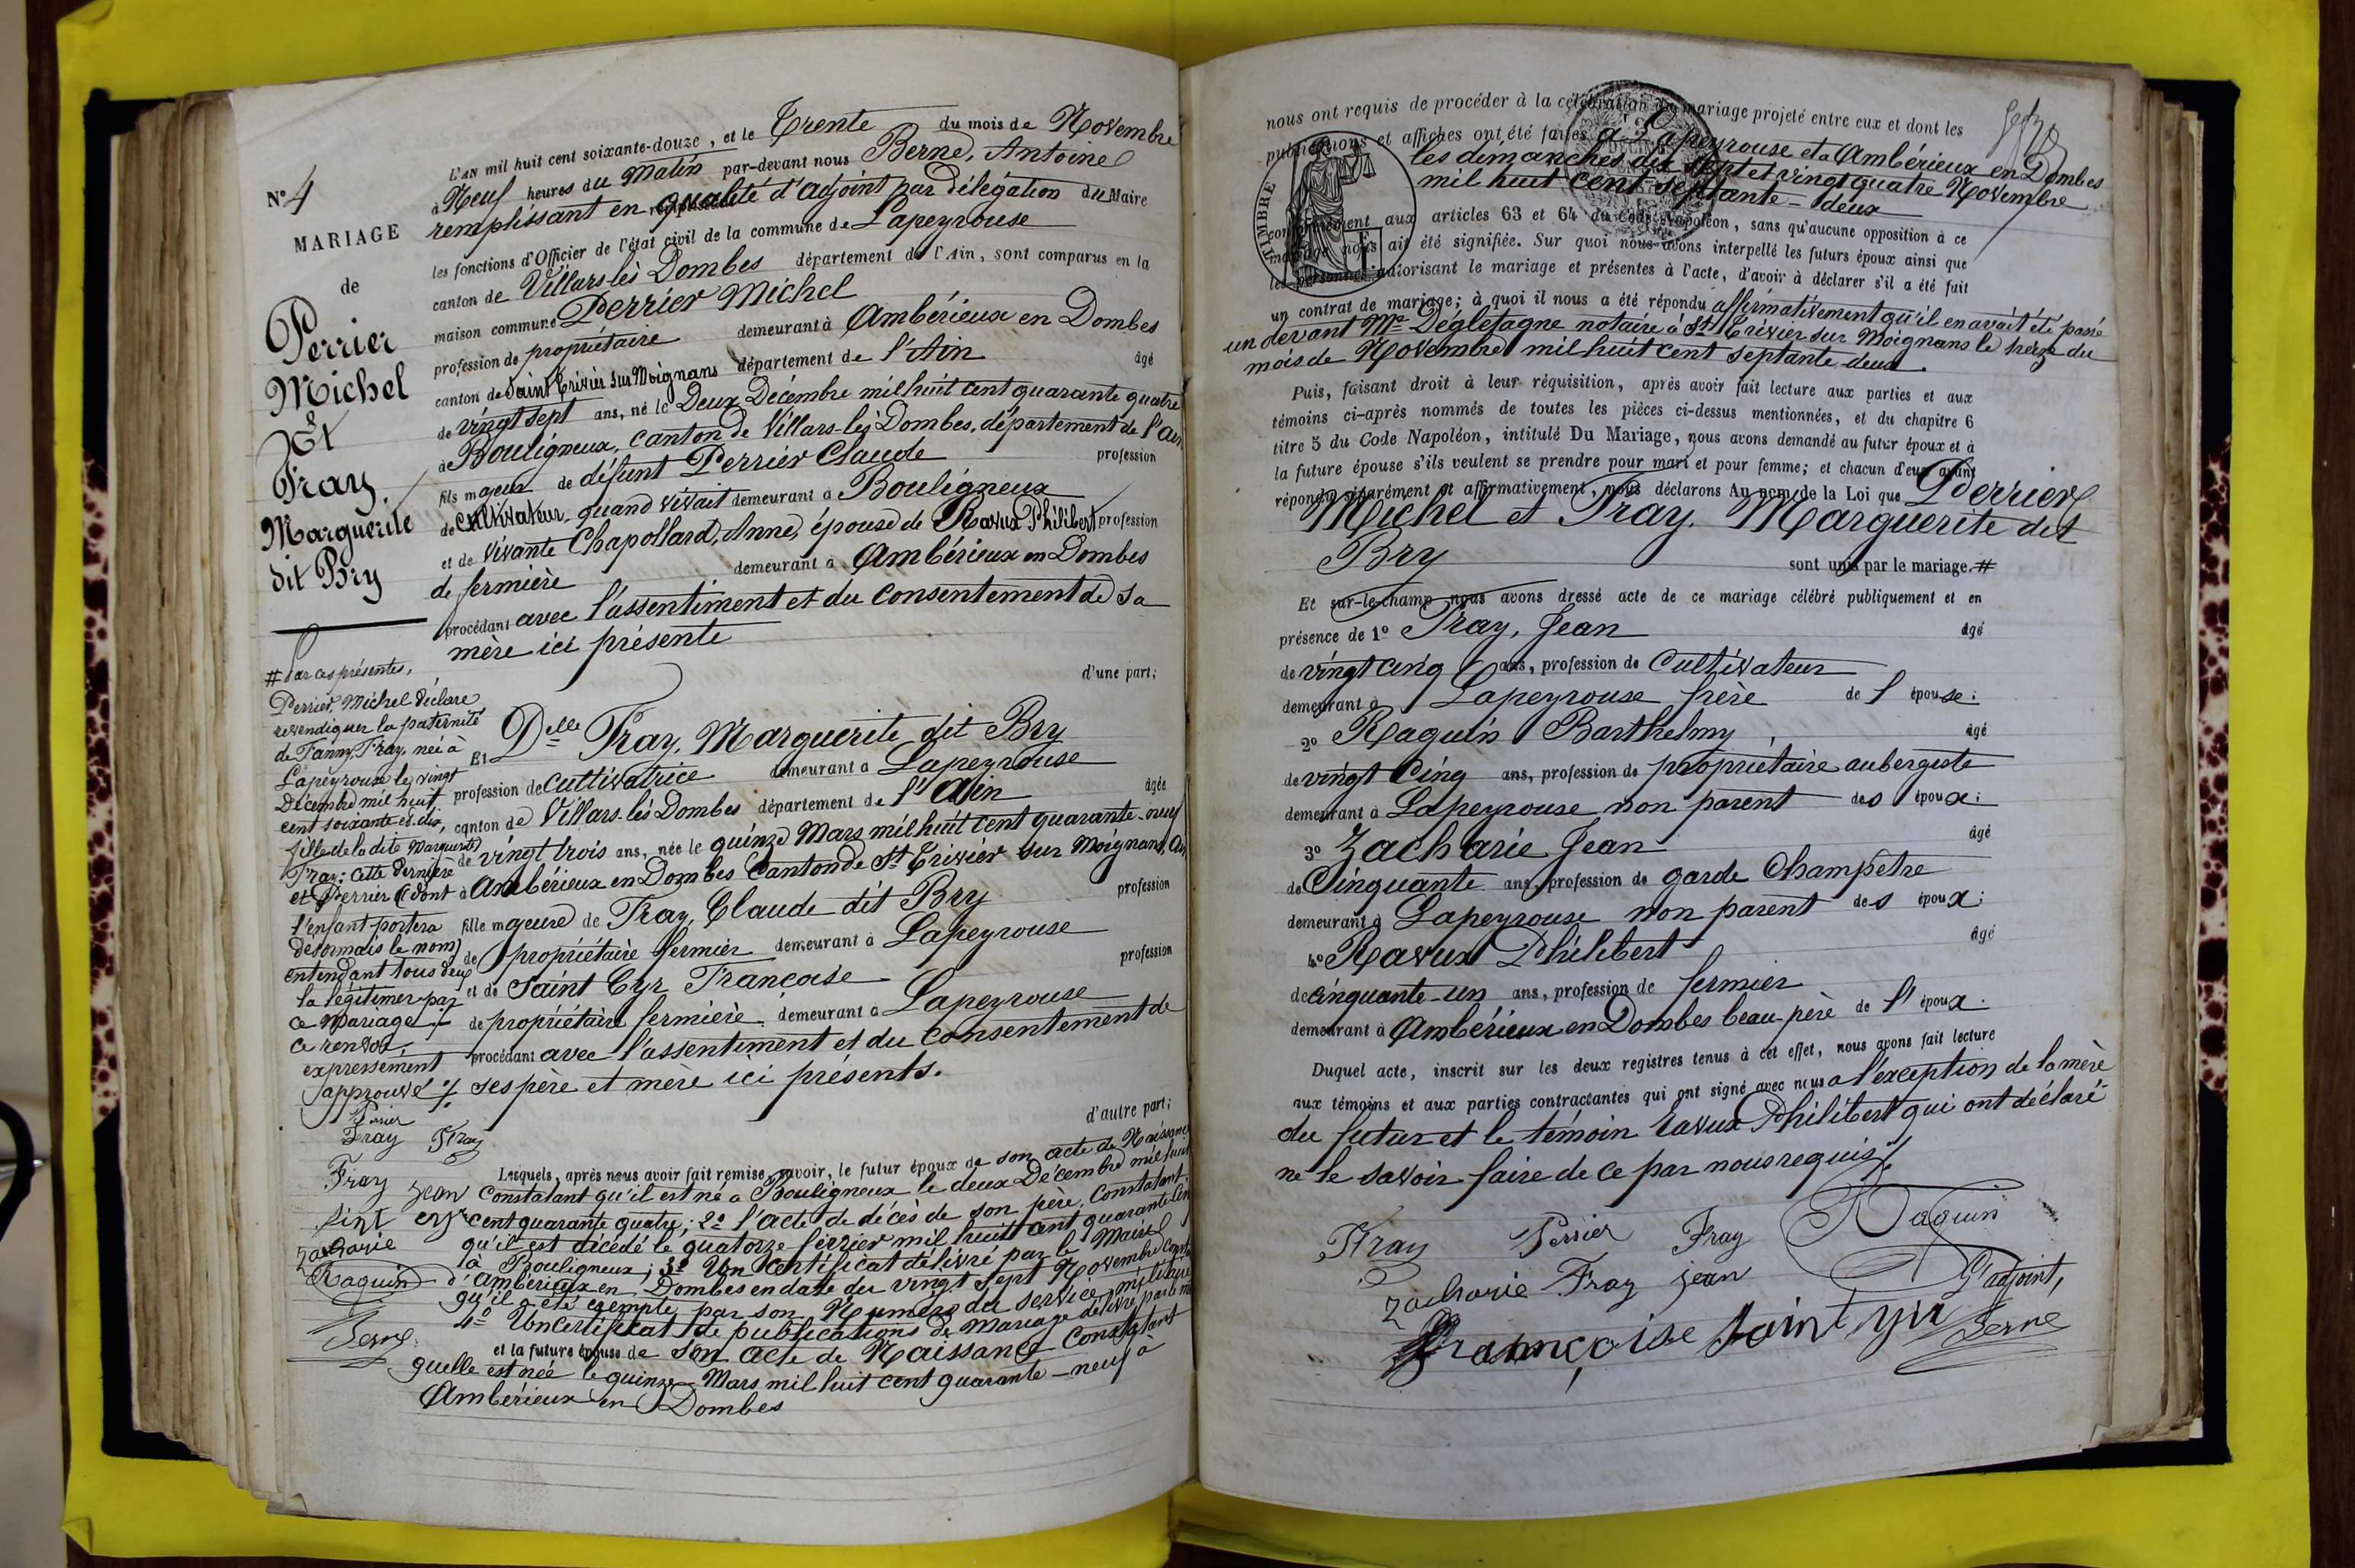 N° 4
MARIAGE
de
Perrier
Michel
Et
Fray
Marguerite
dit Bry
# Par ces présentes,
Perrier, Michel déclare
revendiquer la paternité
de Fanny Fray, née à
Lapeyrouse le vingt
Décembre mil huit
cent soixante et dix,
fille de la dite Marguerite
Fray; cette dernière
et Perrier (dont
l'enfant portera
désormais le nom)
entendant tous deux
la légitimer par
ce mariage #
ce renvoi
expressément
approuvé
Perrier
Fray Fray
Fray Jean
sint cyr
Zacharie
Raquin
Berne
L'AN mil huit cent soixante-douze, et le Trente du mois de Novembre
à Neuf heures du Matin par-devant nous Berne, Antoine
remplissant en qualité d'adjoint par délégation du Maire
les fonctions d'Officier de l'état civil de la commune de Lapeyrouse
canton de Villars-lès Dombes département de l'Ain, sont comparus en la
maison commune Perrier Michel
profession de propriétaire demeurant à Ambérieux en Dombes
canton de Saint Trivier sur Moignans département de l'Ain âgé
de vingt sept ans, né le Deux Décembre mil huit cent quarante quatre
à Bouligneux, canton de Villars-lès Dombes, département de l'Ain
fils majeur de défunt Perrier Claude profession
de Cultivateur, quand vivait demeurant à Bouligneux
et de vivante Chapollard, Anne, épouse de Ravux Philibert profession
de fermière demeurant à Ambérieux en Dombes
procédant avec l'assentiment et du consentement de sa
mère ici présente
d'une part;
Et Delle Fray, Marguerite dit Bry
profession de cultivatrice demeurant à Lapeyrouse
canton de Villars-lès Dombes département de l'Ain âgée
de vingt trois ans, née le quinze Mars mil huit cent quarante-neuf
à Ambérieux en Dombes Canton de St Trivier sur Moignans, Ain
fille majeure de Fray, Claude dit Bry profession
de propriétaire fermier demeurant à Lapeyrouse
et de Saint Cyr Francoise profession
de propriétaire fermière demeurant à Lapeyrouse
procédant avec l'assentiment et du consentement de
ses père et mère ici présents.
d'autre part;
Lesquels, après nous avoir fait remise, savoir, le futur époux de son acte de Naissance
Constatant qu'il est né à Bouligneux le deux Décembre mil huit
cent quarante quatre; 2° l'acte de décès de son père, Constatant
qu'il est décédé le quatorze février mil huit cent quarante cinq
à Bouligneux; 3° Un Certificat délivré par le Maire
d'Ambérieux en Dombes en date du vingt sept Novembre
qu'il a été exempté par son Numéro du service militaire
4° Un certificat de publications de mariage délivré par le
et la future épouse de son acte de Naissance Constatant
quelle est née le quinze Mars mil huit cent quarante-neuf à
Ambérieux en Dombes
nous ont requis de procéder à la célébration du mariage projeté entre eux et dont les
publications et affiches ont été faites à Lapeyrouse et a Ambérieux en Dombes
les dimanches dix sept et vingt quatre Novembre
mil huit cent septante-deux
TIMBRE
conformément aux articles 63 et 64 du Code Napoléon, sans qu'aucune opposition à ce
mariage nous ait été signifiée. Sur quoi nous avons interpellé les futurs époux ainsi que
les personnes autorisant le mariage et présentes à l'acte, d'avoir à déclarer s'il a été fait
un contrat de mariage; à quoi il nous a été répondu affirmativement qu'il en avait été passé
un devant Me Degletagne notaire à St Trivier sur Moignans le treize du
mois de Novembre mil huit cent septante deux.
Puis, faisant droit à leur réquisition, après avoir fait lecture aux parties et aux
témoins ci-après nommés de toutes les pièces ci-dessus mentionnées, et du chapitre 6
titre 5 du Code Napoléon, intitulé Du Mariage, nous avons demandé au futur époux et à
la future épouse s'ils veulent se prendre pour mari et pour femme; et chacun d'eux ayant
répondu séparément et affirmativement, nous déclarons Au nom de la Loi que Perrier
Michel et Fray, Marguerite dit
Bry
sont unis par le mariage. #
Et sur-le-champ nous avons dressé acte de ce mariage célébré publiquement et en
présence de 1° Fray, Jean âgé
de vingt cinq ans, profession de Cultivateur
demeurant à Lapeyrouse frère de l'épouse;
2° Raquin Barthelmy, âgé
de vingt cinq ans, profession de propriétaire aubergiste
demeurant à Lapeyrouse non parent des époux;
3° Zacharie Jean âgé
de Cinquante ans, profession de garde Champêtre
demeurant à Lapeyrouse non parent des époux;
4° Ravux Philibert âgé
de cinquante-un ans, profession de fermier
demeurant à Ambérieux en Dombes beau-père de l'époux.
Duquel acte, inscrit sur les deux registres tenus à cet effet, nous avons fait lecture
aux témoins et aux parties contractantes qui ont signé avec nous à l'exception de la mère
du futur et le témoin Ravux Philibert qui ont déclaré
ne le savoir faire de ce par nous requis.
Fray Perrier Fray Raquin
Zacharie Fray jean L'adjoint,
Françoise saint cyr Berne